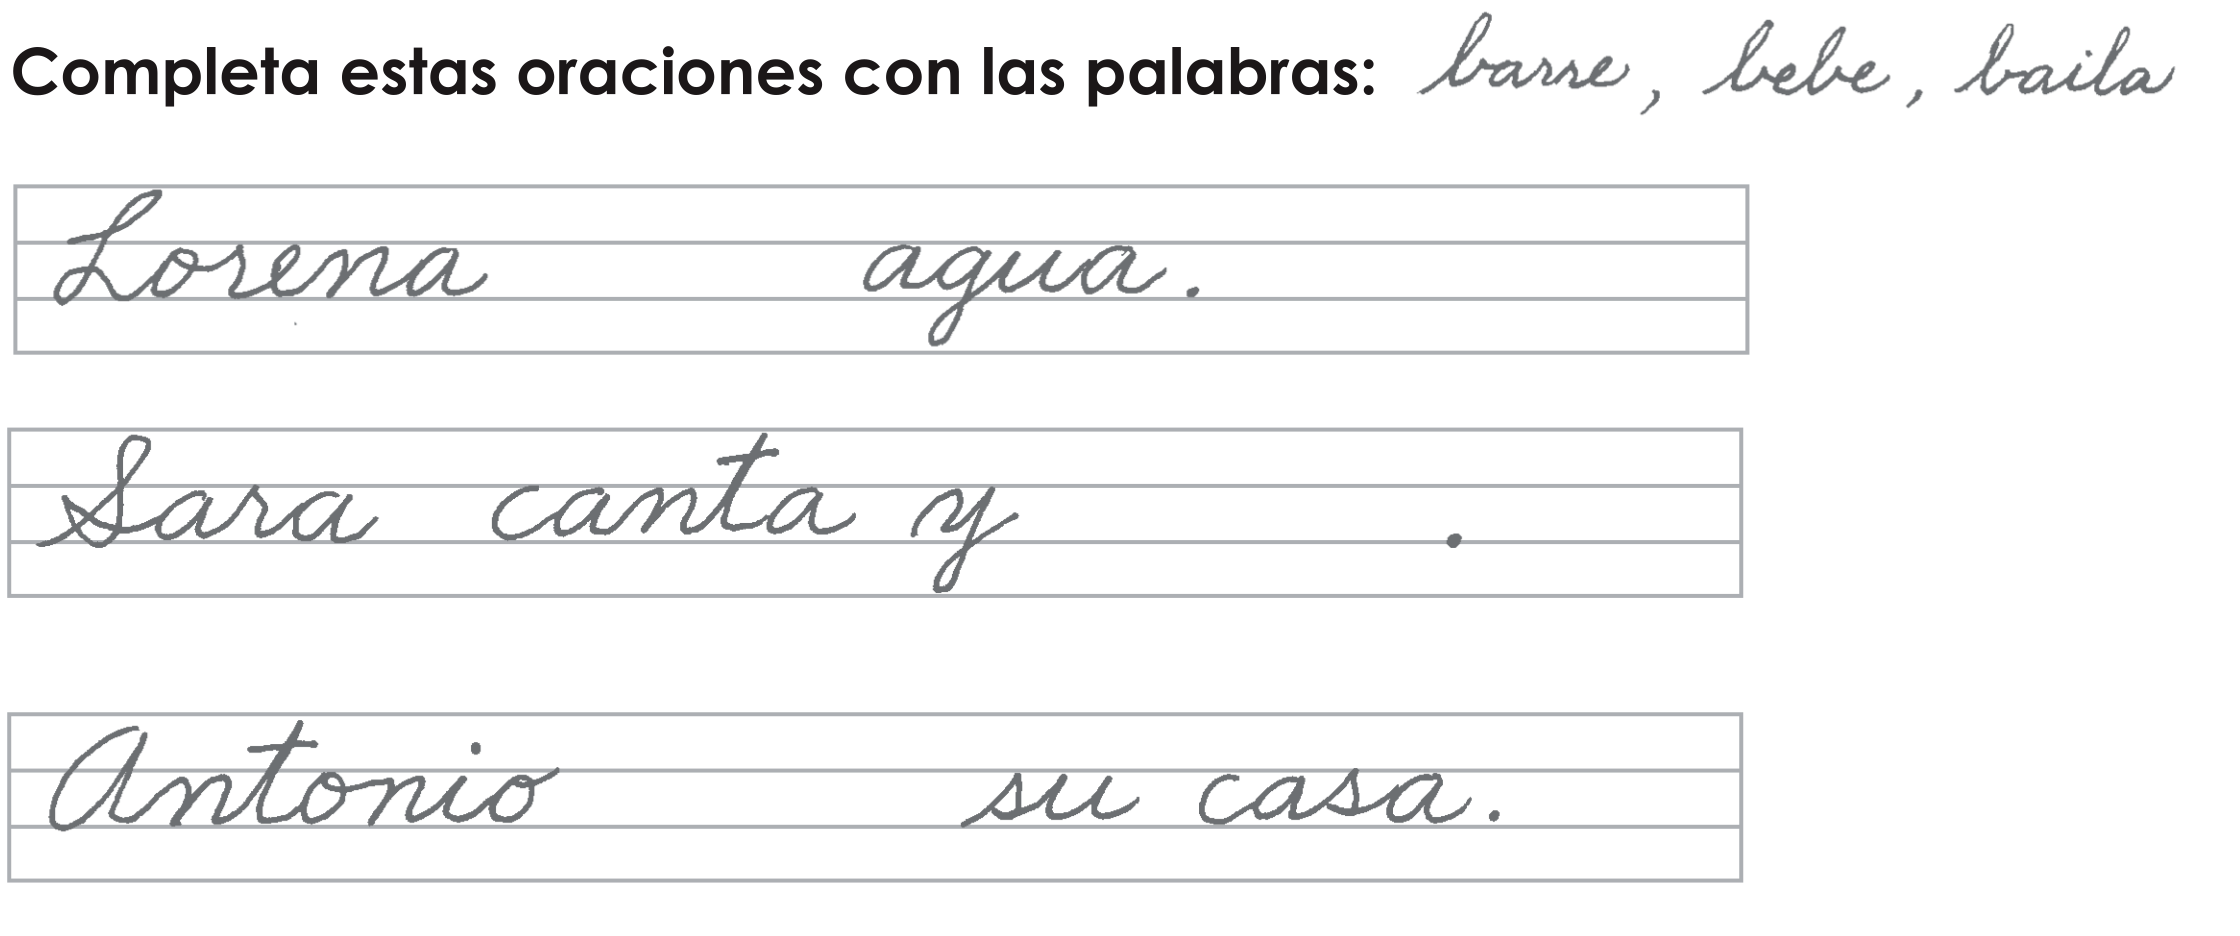 Completa estas oraciones con las palabras: barre, bebe, baila
Lorena agua.
Sara canta y .
Antonio su casa.